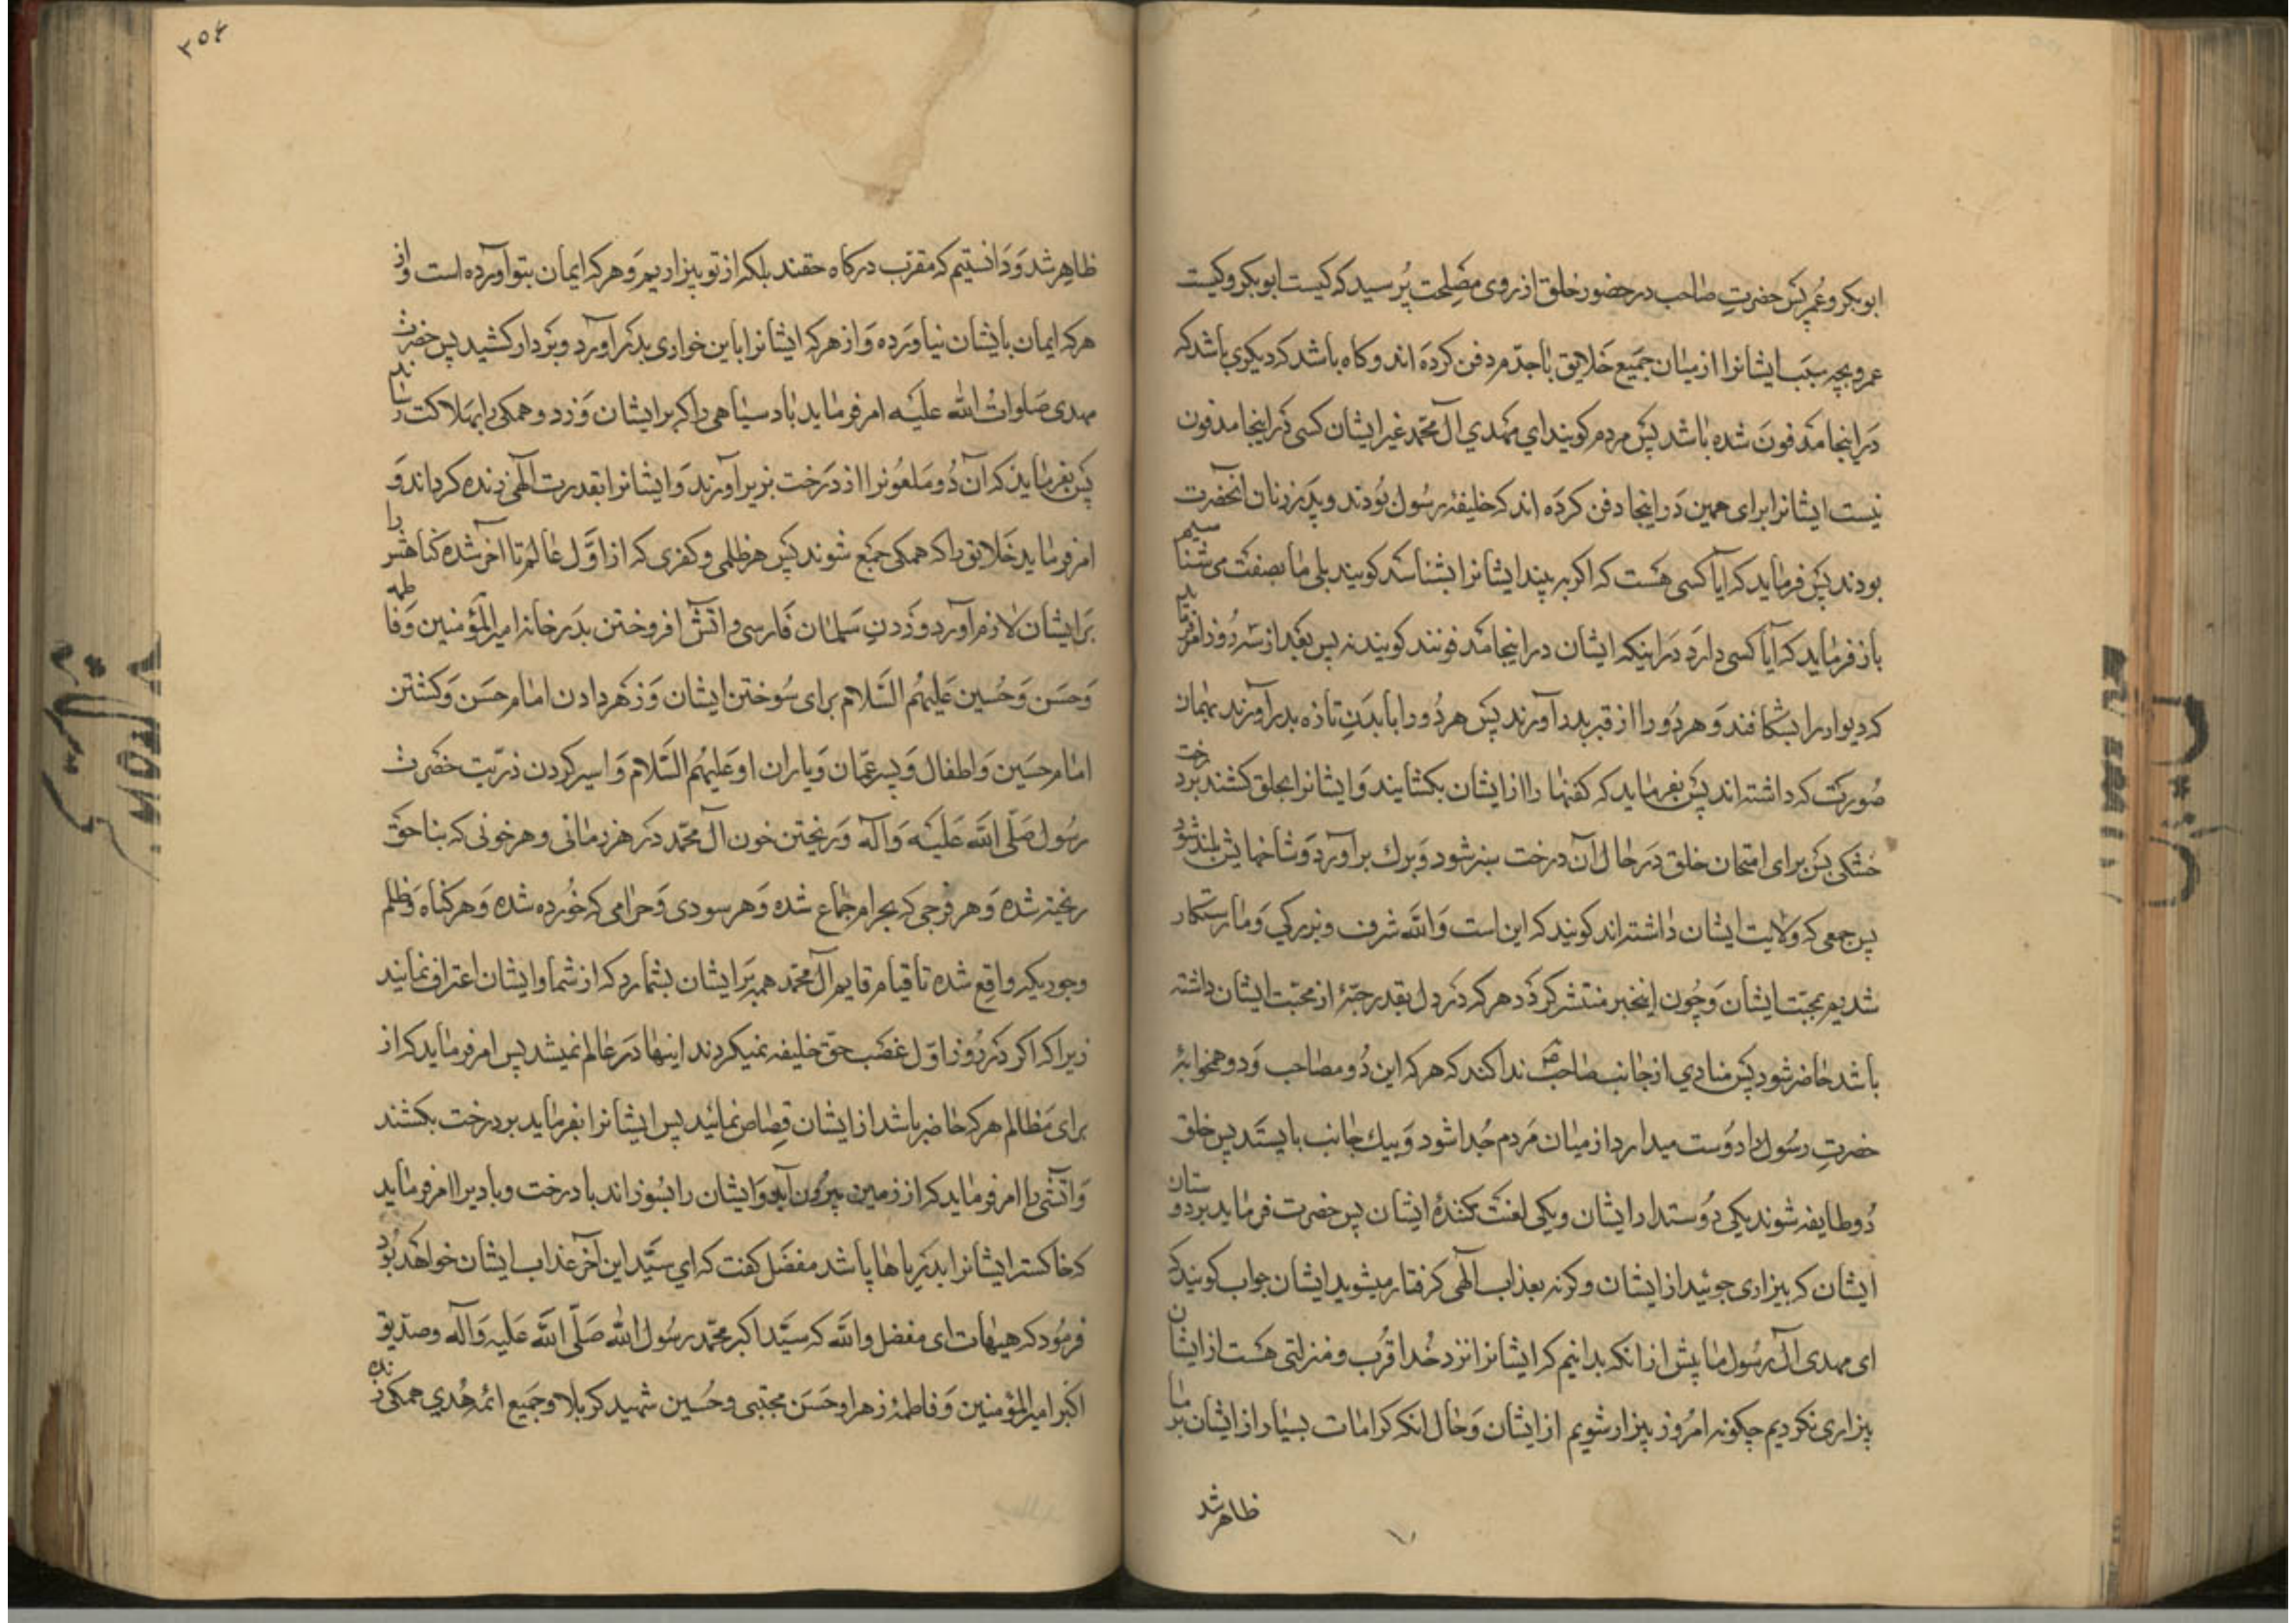 ابوبکر و عُمر پس حضرتِ صاحب در حضور خلق از روی مصلحت پُرسید که کیست ابوبکر و کیست
عمر و بچه سبَب ایشانرا از میان جمیع خَلایق باجدّم دفن کرده اند و کاه باشد که دیکری باشد که
دَر اینجا مدفون شده باشد پس مردم کویند ای مَهدی آل محمّد غیر ایشان کسی دَر اینجا مدفون
نیست ایشانرا برای همین دَر اینجا دفن کرده اند که خلیفه رسُول بُودند و پدَر زنان آنحضرت
بودند پس فرماید که آیا کسی هست که اکر به بیند ایشانرا بشناسد کویند بلی ما بصفت می شناسیم
باز فرماید که آیا کسی دارد دَر اینکه ایشان در اینجا مدفونند کویند نه پس بعد از سه رُوز امر فرماید
که دیوار را بشکافند و هر دُو را از قبر بدر آورند پس هر دُو را با بدَنِ تازه بدر آورند بهمان
صُورت که داشته اند پس بفرماید که کفنها را از ایشان بکشایند وَ ایشانرا بحلق کشند بر درخت
خشکی پس برای امتحان خلق دَر حال آن درخت سبز شود وَ برك بر آورد وَ شاخهایش بلند شود
پس جمعی که وَلایت ایشان داشته اند کویند که این است وَ الله شرف و بزرکی وَ ما رستکار
شدیم بمحبّت ایشان وَ چُون اینخبر منتشر کردَد هر که دَر دل بقدر حبّهٔ از محبّت ایشان داشته
باشد حاضر شود پس منادی از جانب صاحب ندا کند که هر که این دُو مصاحب وَ دو همخوابهٔ
حضرتِ رسُول را دوَست میدارد از میان مَردم جُدا شود وَ بیك جانب بایستَد پس خلق
دُو طایفه شوند یکی دوُستدار ایشان و یکی لعنت کنندهٔ ایشان پس حضرت فرماید بر دوستان
ایشان که بیزاری جوئید از ایشان و کرنه بعذاب الهی کرفتار میشوید ایشان جواب کویند که
ای مهدی آل رسُول ما پیش از انکه بدانیم که ایشانرا نزد خُدا قُرب و منزلتی هست از ایشان
بیزاری نکردیم چکونه امرُوز بیزار شویم از ایشان وَ حال انکه کرامات بسیار از ایشان بر ما
ظاهر شد
٣٥٤
ظاهر شد وَ دَانستیم که مقرّب درکاه حقند بلکه از تو بیزاریم وَ هر که ایمان بتو آورده است و از
هر که ایمان بایشان نیاورَده وَ از هر که ایشانرا باین خواری بدَر آورد و بَر دار کشید پس حضرت
مهدی صَلواتُ الله علیَه امر فرماید باد سیاهی را که بر ایشان وَزد و همکی را بهلاکت رساند
پس بفرماید که آن دُو مَلعُونرا از دَرَخت بزیر آورند وَ ایشانرا بقدرت الهی زنده کرداند وَ
امر فرماید خَلایق را که همکی جَمع شوند پس هر ظلمی و کفری که از اوَّل عالم تا آخر شده کناهش را
بَر ایشان لازم آورد و زَدنِ سَلمان فَارسی و آتش افروختن بدَر خانه امیرالمؤمنین وَ فاطمه
وَ حسَن وَ حُسین عَلیهمُ السَّلام برای سُوختن ایشان وَ زهر دادن امام حسَن وَ کشتن
امام حسَین وَ اطفال وَ پسر عمّان وَ یاران او عَلیهمُ السَّلام وَ اسیر کردن ذریّت حضرت
رسُول صَلّی اللهَ عَلیَه وَ آله وَ ریختن خون آل محمّد دَر هر زمانی و هر خونی که بناحق
ریخته شده وَ هر فرجی که بحرام جماع شده وَ هر سودی وَ حرامی که خُورده شده وَ هر کناه وَ ظلم
و جوریکه واقِع شده تا قیام قایم آل محمّد همه بَر ایشان بشمارد که از شما و ایشان اعتراف نمایند
زیرا که اکر دَر رُوز اوّل غصَب حق خلیفه نمیکردند اینها دَر عالم نمیشد پس امر فرماید که از
برای مَظالم هر که حاضر باشد از ایشان قِصاص نمایند پس ایشانرا بفرماید بر درخت بکشند
وَ آتشی را امر فرماید که از زمین بیرُون آید وَ ایشان را بسُوزاند با درخت و بادیرا امر فرماید
که خاکستر ایشانرا بدَریاها پاشد مفضّل کفت که ای سیّد این آخر عذاب ایشان خواهد بُود
فرمُود که هیهات ای مفضل والله که سیّد اکبر محمّد رسُول الله صَلّی اللهَ عَلیه وَ آله و صدّیق
اکبر امیرالمؤمنین وَ فاطمهٔ زهرا وحسَن مجتبی و حُسین شهید کربلا و جَمیع ائمه هُدی همکی زنده